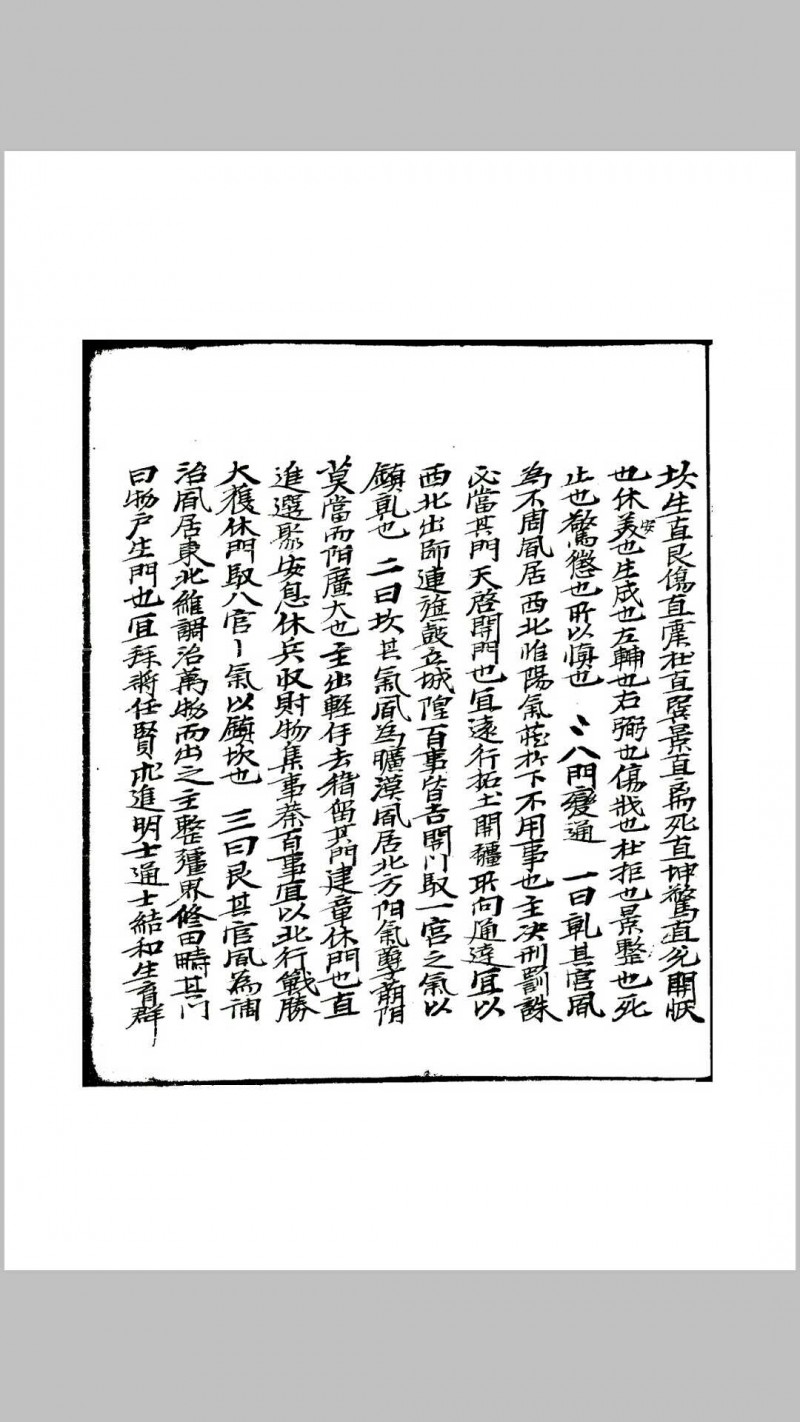 坎生直艮傷直震杜直巽景直离死直坤驚直兌開
也休美也安生成也左輔也右弼也傷戕也杜拒也景整也死
止也驚懲也所以慎也 〻八門變通 一曰乹其宮風
為不周風居西北惟陽氣藏於下不用事也主决刑罰誅
必當其門天啓開門也宜遠行拓土開疆所向通達宜以
西北出師連旌鼓立城隍百事皆吉開門馭一宮之氣以
鎮乹也 二曰坎其氣風為曠漠風居北方陽氣尊前陰
莫當而陽廣大也主出輕仔去稽留其門建章休門也直
進選聚安息休兵収財物集事萘百事宜以北行戰勝
大獲休門馭八宮〻氣以鎮坎也 三曰艮其宮風為
治風居東北維調治萬物而出之主整疆界修田疇其门
曰物户生門也宜拜將任賢求進明士通士結和生育群